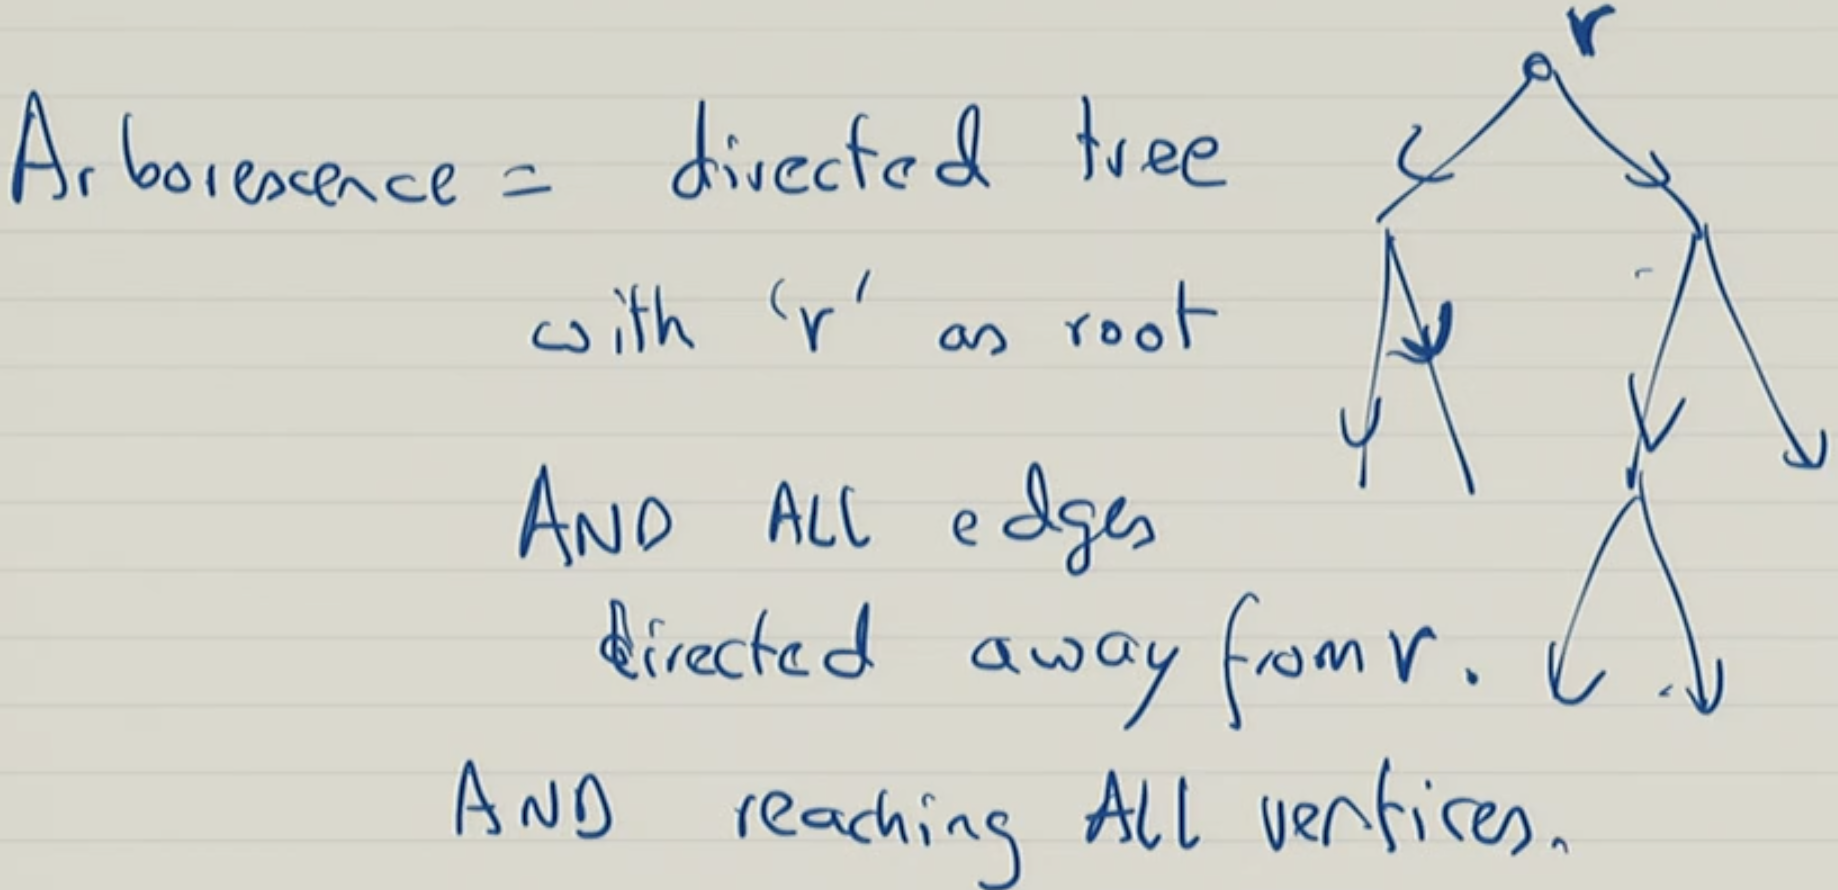 r
Arborescence = directed tree
with 'r' as root
AND ALL edges
directed away from r.
AND reaching ALL vertices.